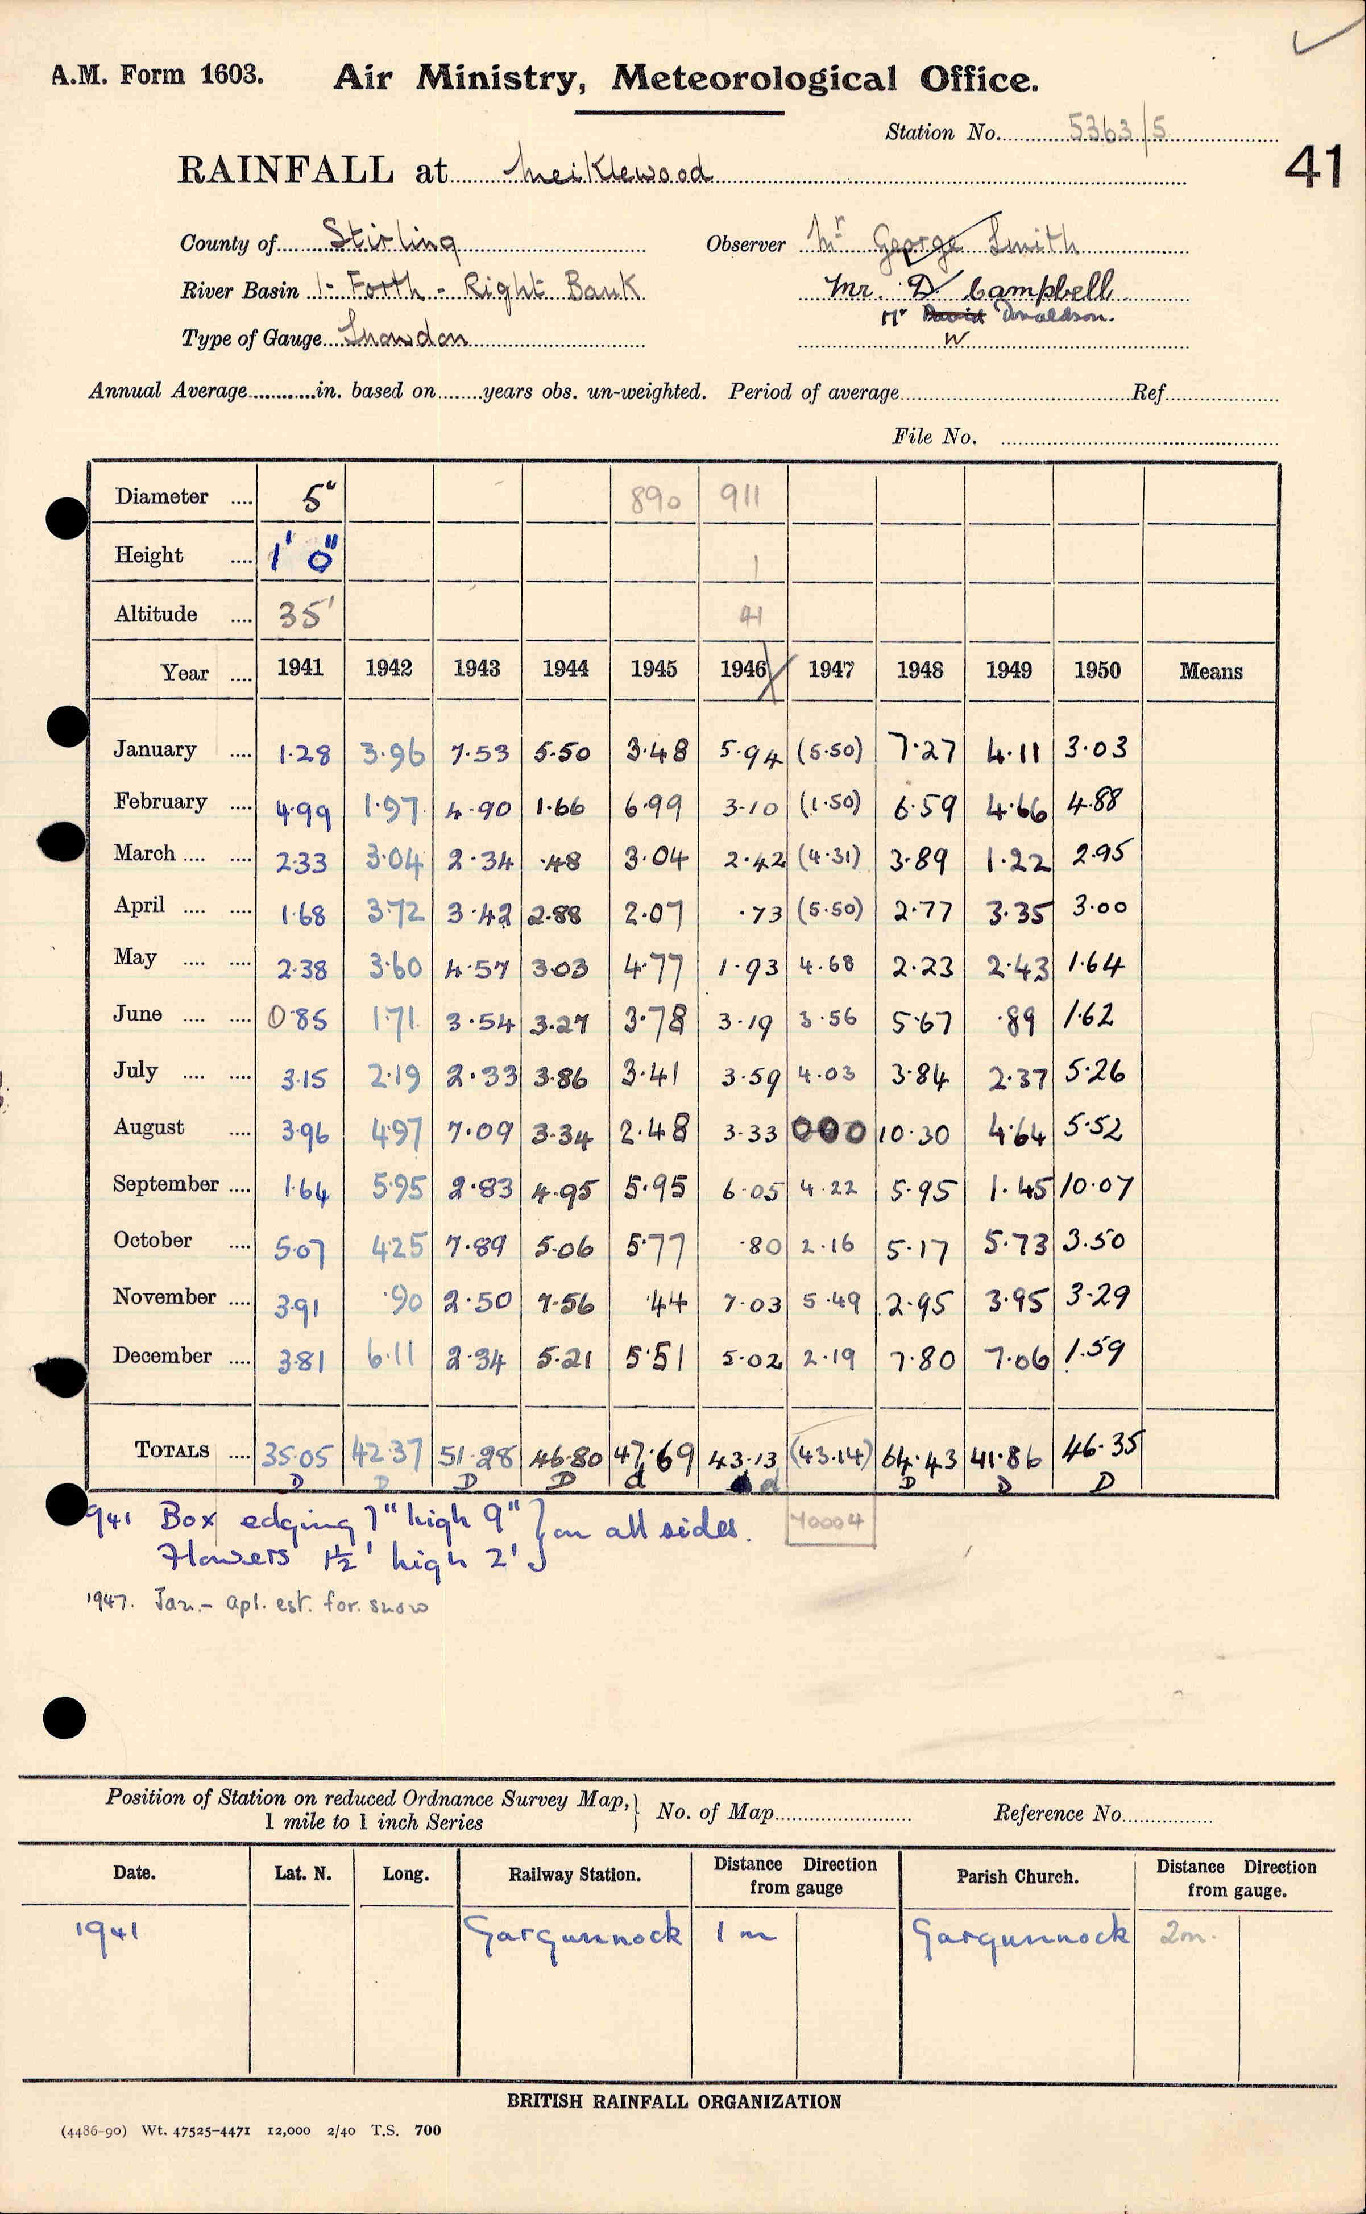 A.M. Form 1603. Air Ministry, Meteorological Office.
Station No. 5363/5
41
RAINFALL at Meiklewood
County of Stirling Observer Mr George Smith
River Basin 1- Forth - Right Bank Mr. D Campbell
Mr David Donaldson.
W
Type of Gauge Snowdon
Annual Average in. based on years obs. un-weighted. Period of average Ref
File No.
Diameter 5" 890 911
Height 1' 0" 1
Altitude 35' 41
Year 1941 1942 1943 1944 1945 1946 1947 1948 1949 1950 Means
January 1.28 3.96 7.53 5.50 3.48 5.94 (5.50) 7.27 4.11 3.03
February 4.99 1.97 4.90 1.66 6.99 3.10 (1.50) 6.59 4.66 4.88
March 2.33 3.04 2.34 .48 3.04 2.42 (4.31) 3.89 1.22 2.95
April 1.68 3.72 3.42 2.88 2.07 .73 (5.50) 2.77 3.35 3.00
May 2.38 3.60 4.57 3.03 4.77 1.93 4.68 2.23 2.43 1.64
June 0.85 1.71 3.54 3.27 3.78 3.19 3.56 5.67 .89 1.62
July 3.15 2.19 2.33 3.86 3.41 3.59 4.03 3.84 2.37 5.26
August 3.96 4.97 7.09 3.34 2.48 3.33 000 10.30 4.64 5.52
September 1.64 5.95 2.83 4.95 5.95 6.05 4.22 5.95 1.45 10.07
October 5.07 4.25 7.89 5.06 5.77 .80 2.16 5.17 5.73 3.50
November 3.91 .90 2.50 7.56 .44 7.03 5.49 2.95 3.95 3.29
December 3.81 6.11 2.34 5.21 5.51 5.02 2.19 7.80 7.06 1.59
TOTALS 35.05 42.37 51.28 46.80 47.69 43.13 (43.14) 64.43 41.86 46.35
D D D D d d D D D
1941 Box edging 7" high 9" } on all sides.
Flowers 1½' high 2' }
70004
1947. Jan. - apl. est. for. snow
Position of Station on reduced Ordnance Survey Map, } No. of Map Reference No.
1 mile to 1 inch Series
Date. Lat. N. Long. Railway Station. Distance Direction from gauge Parish Church. Distance Direction from gauge.
1941 Gargunnock 1 m Gargunnock 2m.
BRITISH RAINFALL ORGANIZATION
(4486-90) Wt. 47525-4471 12,000 2/40 T.S. 700